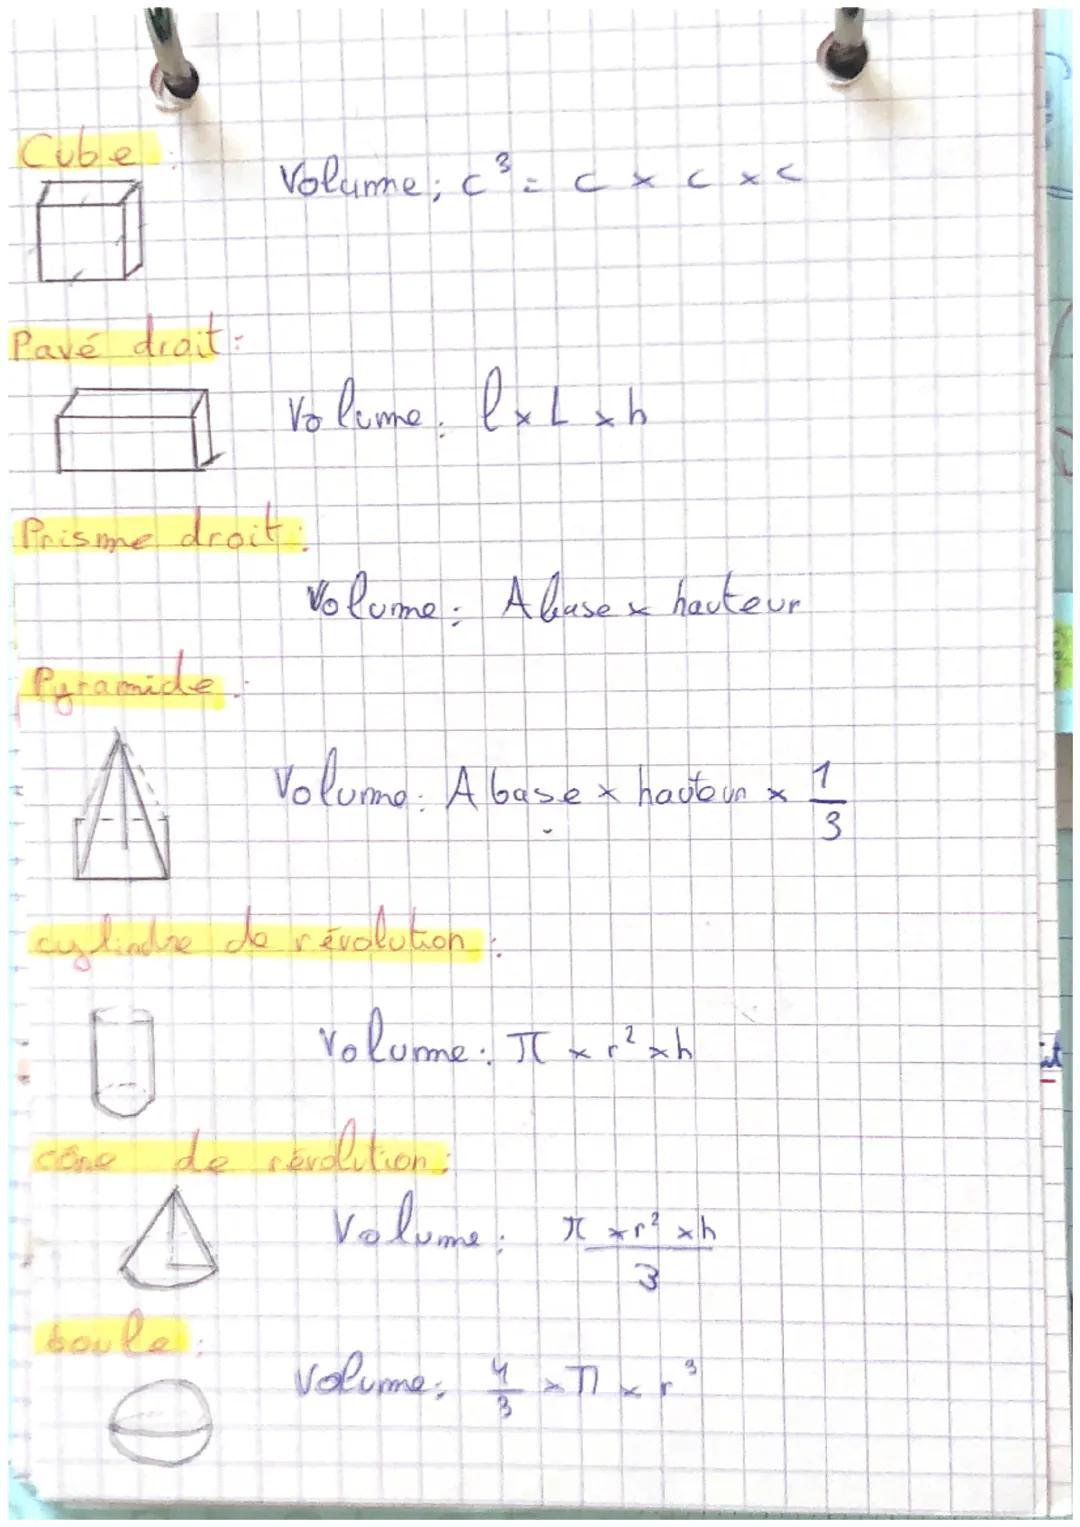 Cube :
Volume : c³ = c × c × c
Pavé droit :
Volume : l × L × h
Prisme droit :
Volume : A base × hauteur
Pyramide :
Volume : A base × hauteur × 1/3
cylindre de révolution :
Volume : π × r² × h
cône de révolution :
Volume : π × r² × h / 3
boule :
Volume : 4/3 × π × r³